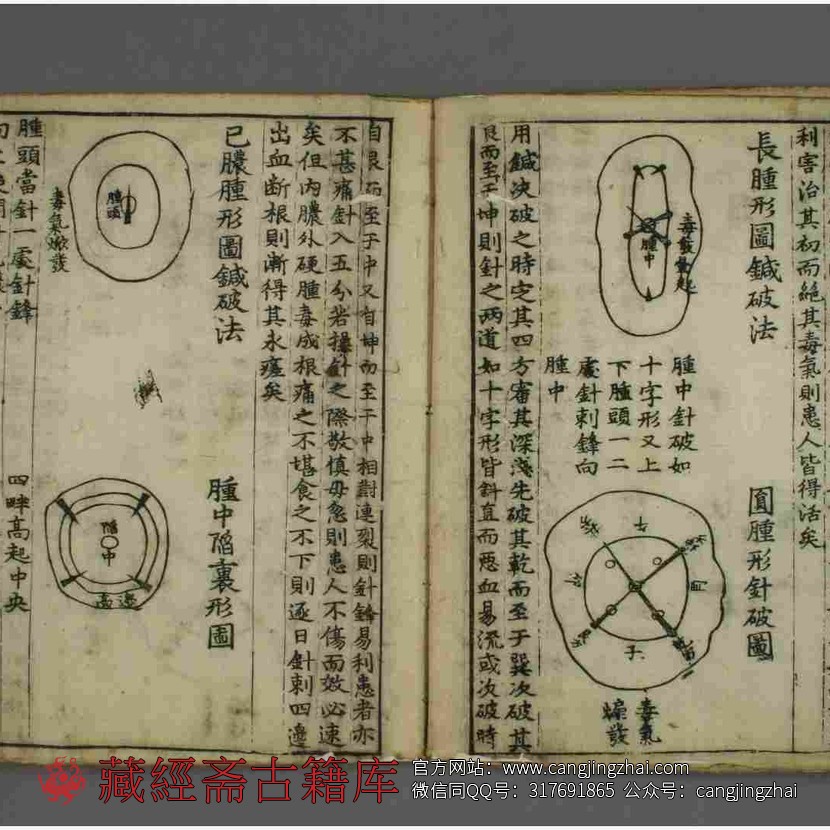 利害治其初而絶其毒氣則患人皆得活矣
長腫形圖鍼破法
毒發
腫中
腫中針破如
十字形又上
下腫頭一二
處針刺鋒向
腫中
圓腫形針破圖
午
子
毒氣
用鍼决破之時定其四方審其深淺先破其乾而至于巽次破其
艮而至于坤則針之兩道如十字形皆斜直而悪血易流或次破時
自艮而至于中又自坤而至于中相對連裂則針鋒易利患者亦
不甚痛針入五分若操針之際敬慎毋忽則患人不傷而效必速
矣但内膿外硬腫毒成根痛之不堪食之不下則逐日針刺四邊
出血断根則漸得其永瘥矣
已膿腫形圖鍼破法
腫頭
毒氣
腫中陷裏形圖
陷中
邊高
腫頭當針一處針鋒
四畔高起中央
藏經斋古籍库
官方网站：www.cangjingzhai.com
微信同QQ号：317691865 公众号：cangjingzhai